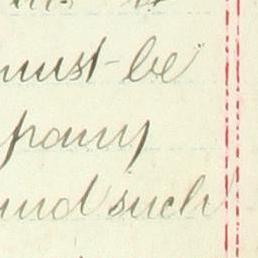 must be
pany
und such